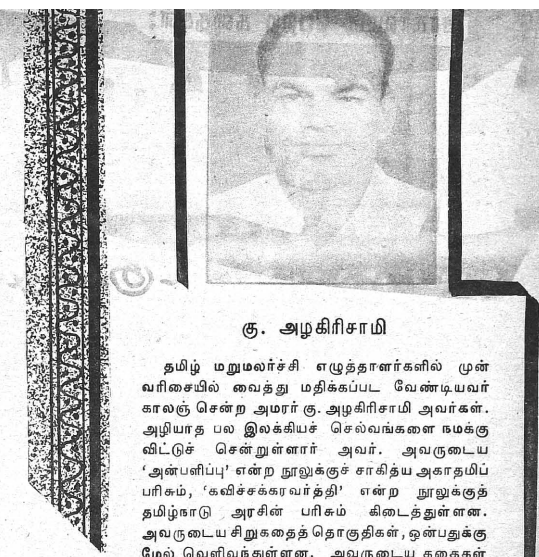 கு. அழகிரிசாமி
தமிழ் மறுமலர்ச்சி எழுத்தாளர்களில் முன்
வரிசையில் வைத்து மதிக்கப்பட வேண்டியவர்
காலஞ் சென்ற அமரர் கு. அழகிரிசாமி அவர்கள்.
அழியாத பல இலக்கியச் செல்வங்களை நமக்கு
விட்டுச் சென்றுள்ளார் அவர். அவருடைய
‘அன்பளிப்பு’ என்ற நூலுக்குச் சாகித்ய அகாதமிப்
பரிசும், ‘கவிச்சக்கரவர்த்தி’ என்ற நூலுக்குத்
தமிழ்நாடு அரசின் பரிசும் கிடைத்துள்ளன.
அவருடைய சிறுகதைத் தொகுதிகள், ஒன்பதுக்கு
மேல் வெளிவந்துள்ளன. அவருடைய கதைகள்